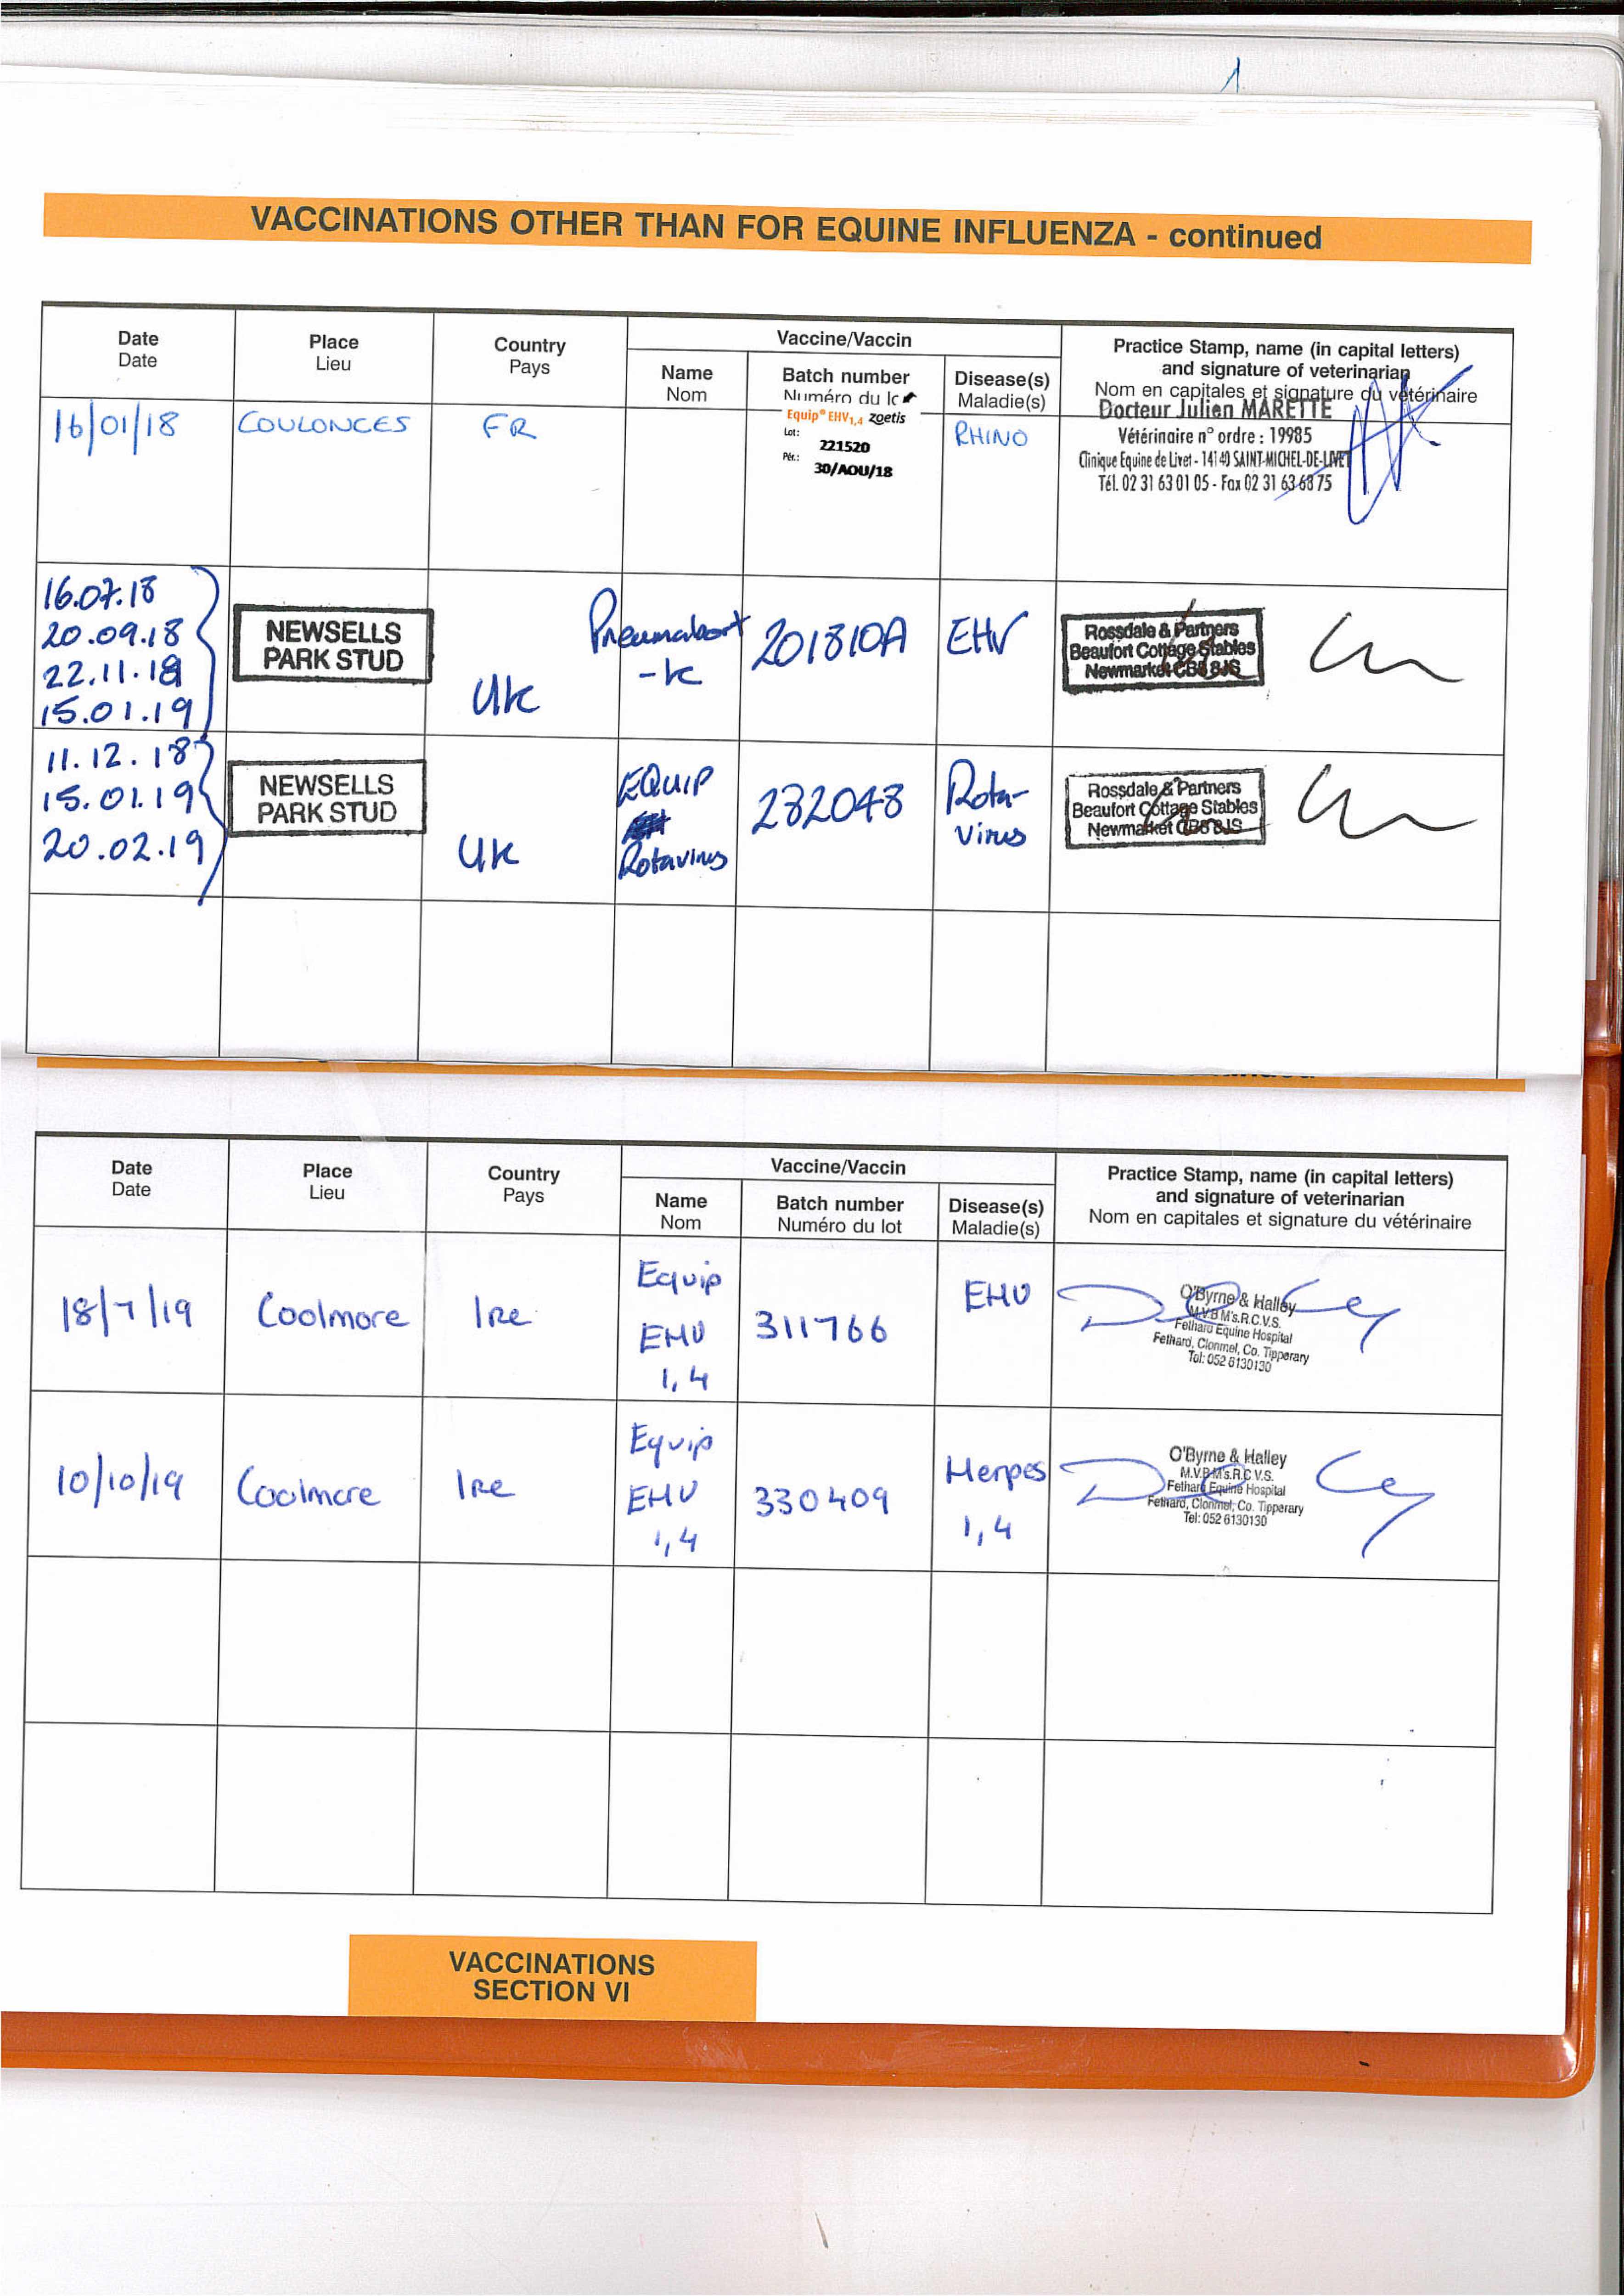 1
VACCINATIONS OTHER THAN FOR EQUINE INFLUENZA - continued
Date
Date
Place
Lieu
Country
Pays
Vaccine/Vaccin
Name
Nom
Batch number
Numéro du lc
Disease(s)
Maladie(s)
Practice Stamp, name (in capital letters)
and signature of veterinarian
Nom en capitales et signature du vétérinaire
16/01/18
COULONCES
FR
Equip® EHV1,4 zoetis
Lot:
221520
Pér.:
30/AOU/18
RHINO
Docteur Julien MARETTE
Vétérinaire n° ordre : 19985
Clinique Equine de Livet - 14140 SAINT-MICHEL-DE-LIVET
Tél. 02 31 63 01 05 - Fax 02 31 63 68 75
16.07.18
20.09.18
22.11.18
15.01.19
NEWSELLS
PARK STUD
UK
Pneumabort
-K
201810A
EHV
Rossdale & Partners
Beaufort Cottage Stables
Newmarket CB8 8JS
11.12.18
15.01.19
20.02.19
NEWSELLS
PARK STUD
UK
EQUIP
Rotavirus
232048
Rota-
virus
Rossdale & Partners
Beaufort Cottage Stables
Newmarket CB8 8JS
Date
Date
Place
Lieu
Country
Pays
Vaccine/Vaccin
Name
Nom
Batch number
Numéro du lot
Disease(s)
Maladie(s)
Practice Stamp, name (in capital letters)
and signature of veterinarian
Nom en capitales et signature du vétérinaire
18/7/19
Coolmore
Ire
Equip
EHV
1,4
311766
EHV
O'Byrne & Halley
M.V.B M's.R.C.V.S.
Fethard Equine Hospital
Fethard, Clonmel, Co. Tipperary
Tel: 052 6130130
10/10/19
Coolmore
Ire
Equip
EHV
1,4
330409
Herpes
1,4
O'Byrne & Halley
M.V.B M's.R.C.V.S.
Fethard Equine Hospital
Fethard, Clonmel, Co. Tipperary
Tel: 052 6130130
VACCINATIONS
SECTION VI